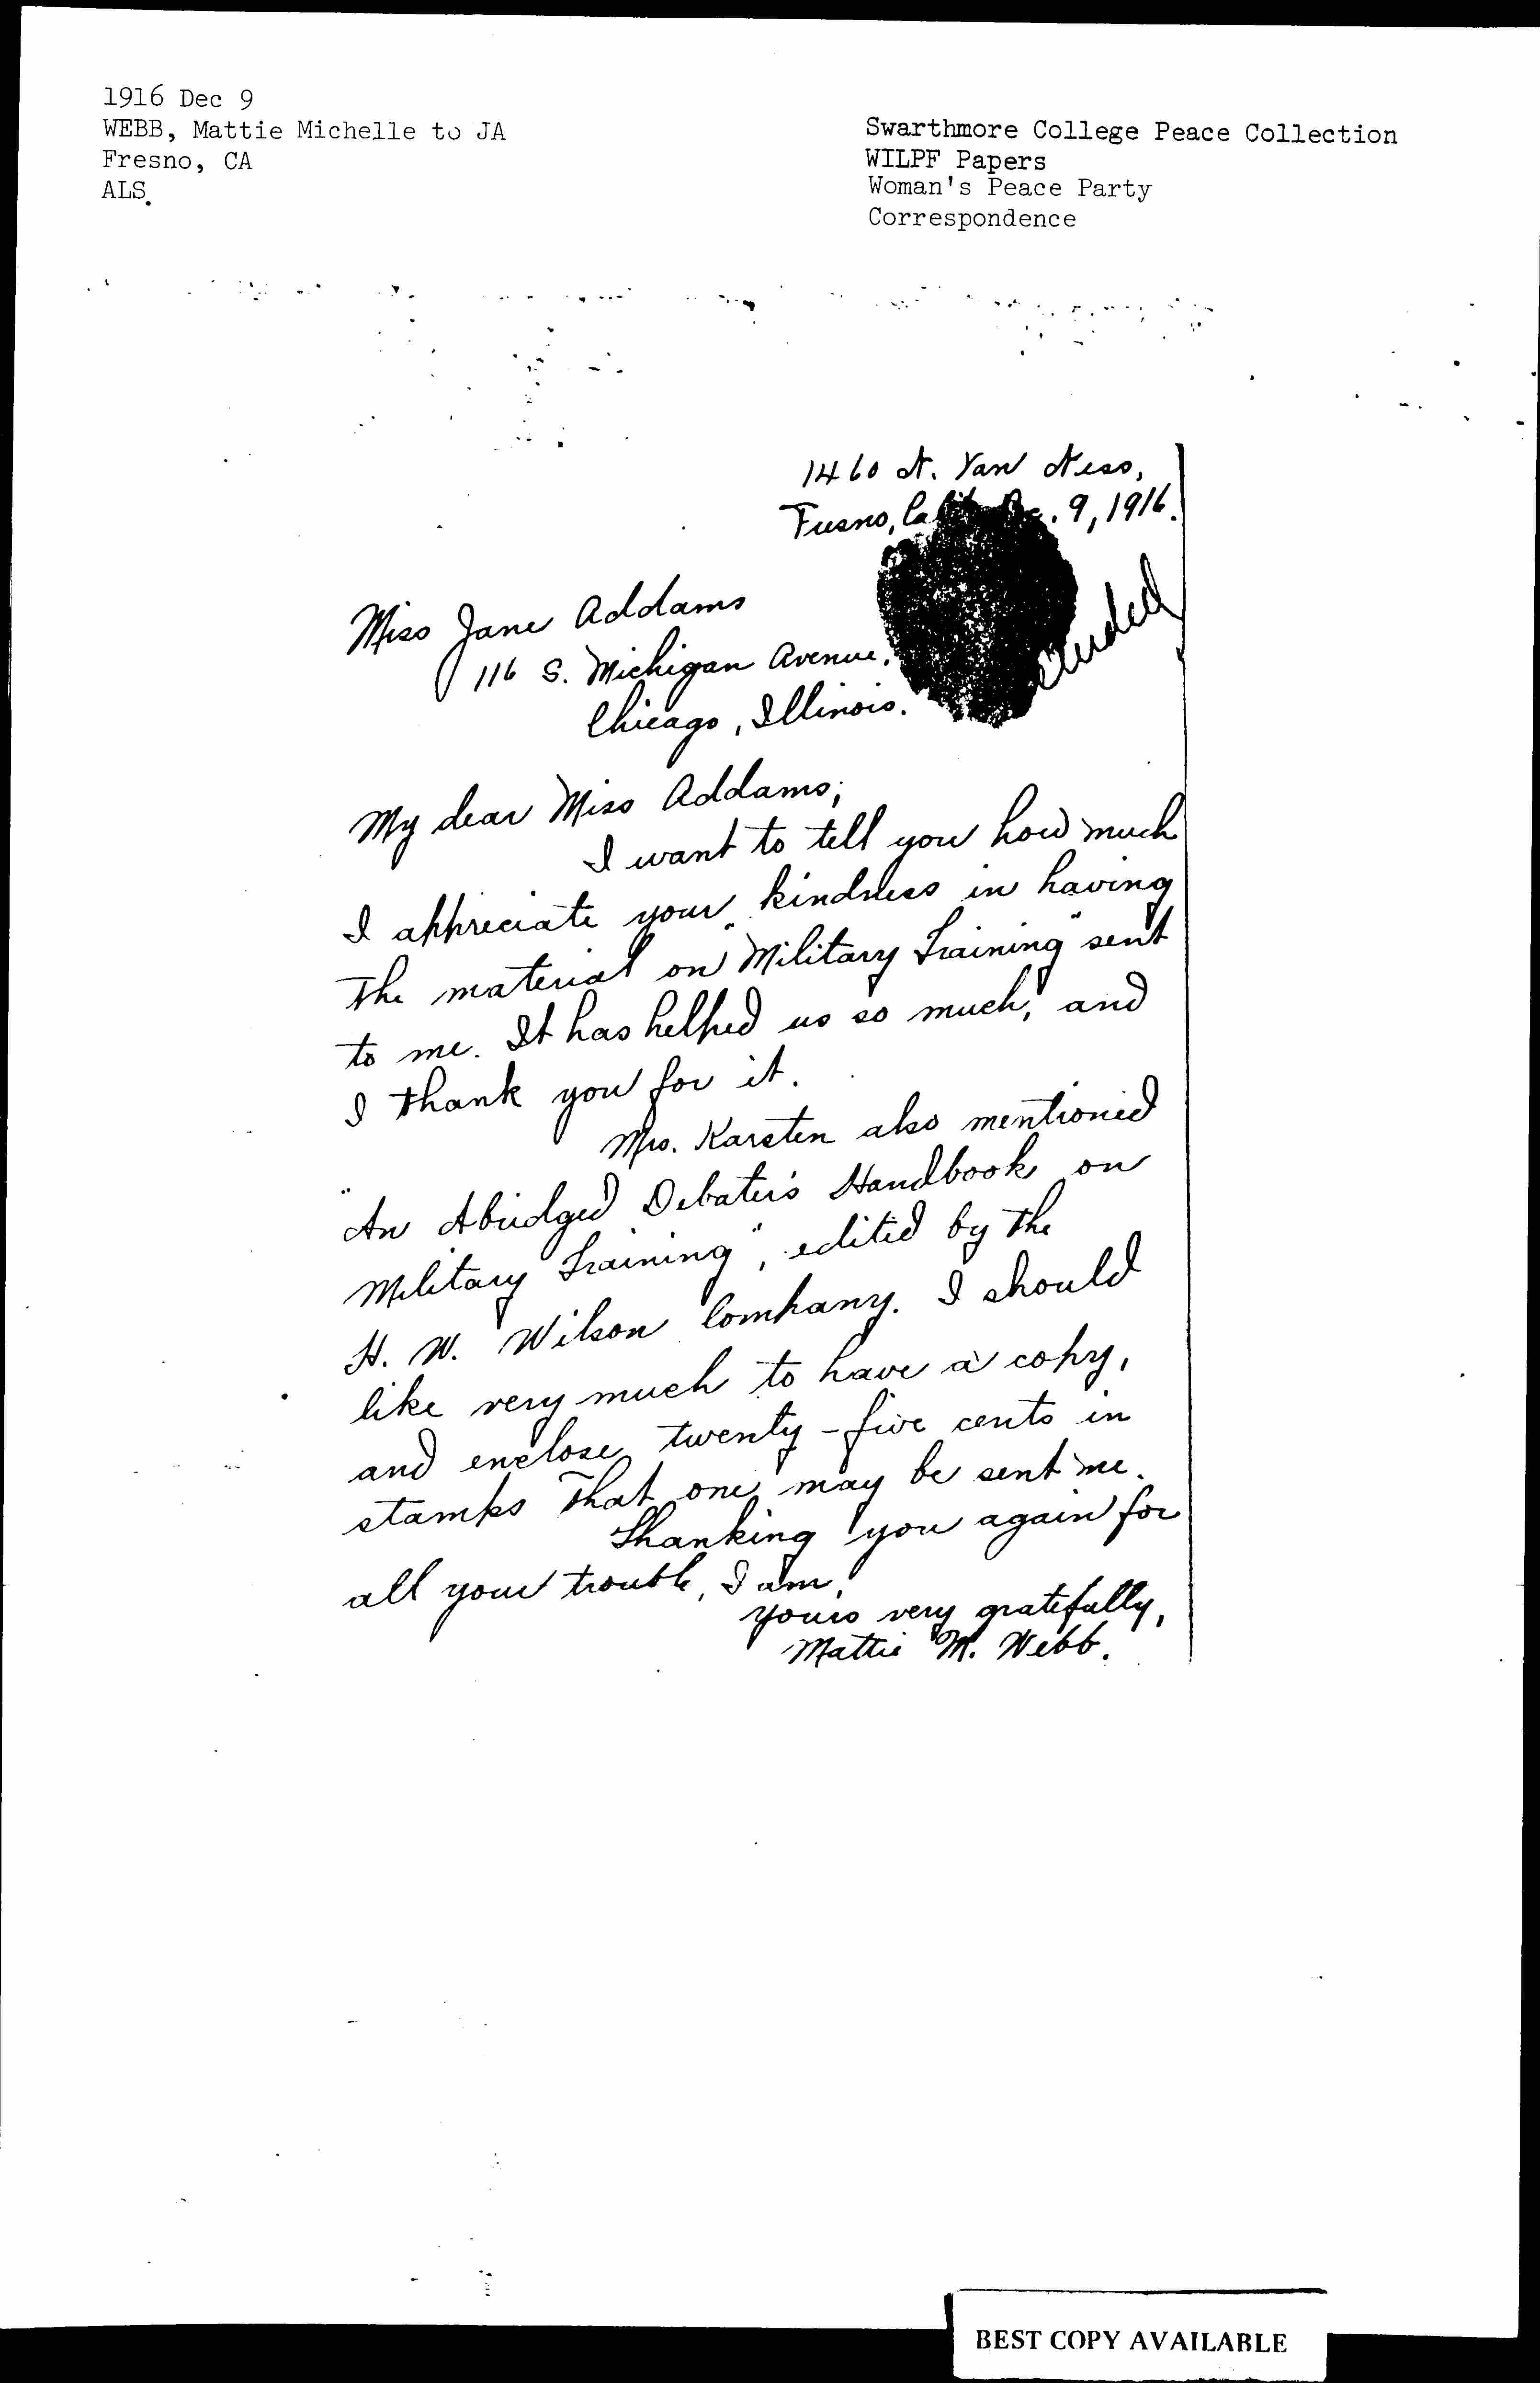 1916 Dec 9
WEBB, Mattie Michelle to JA
Fresno, CA
ALS.
Swarthmore College Peace Collection
WILPF Papers
Woman's Peace Party
Correspondence
1460 N. Van Ness,
Fresno, Calif. Dec. 9, 1916.
Miss Jane Addams
116 S. Michigan Avenue,
Chicago, Illinois.
My dear Miss Addams;
I want to tell you how much
I appreciate your kindness in having
the material on "Military Training" sent
to me. It has helped us so much, and
I thank you for it.
Mrs. Karsten also mentioned
"An Abridged Debater's Handbook on
Military Training", edited by the
H. W. Wilson Company. I should
like very much to have a copy,
and enclose twenty-five cents in
stamps that one may be sent me.
Thanking you again for
all your trouble, I am,
Yours very gratefully,
Mattie M. Webb.
BEST COPY AVAILABLE